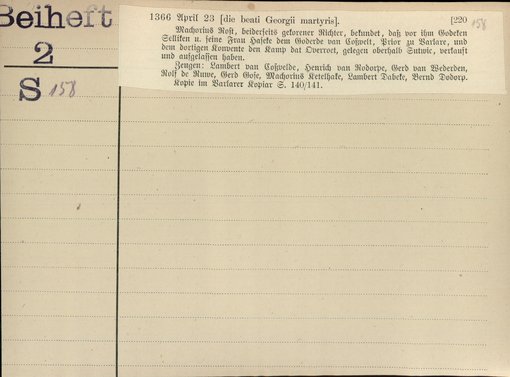 Beiheft
2
S 158
1366 April 23 [die beati Georgii martyris]. [220 158
Machorius Rost, beiderseits gekorener Richter, bekundet, daß vor ihm Godeken
Selliken u. seine Frau Haseke dem Goderde van Coßvelt, Prior zu Varlare, und
dem dortigen Konvente den Kamp dat Overvoet, gelegen oberhalb Sutwic, verkauft
und aufgelassen haben.
Zeugen: Lambert van Coßvelde, Henrich van Rodorpe, Gerd van Wederden,
Rolf de Ruwe, Gerd Gose, Machorius Ketelhake, Lambert Dabeke, Bernd Dodorp.
Kopie im Varlarer Kopiar S. 140/141.